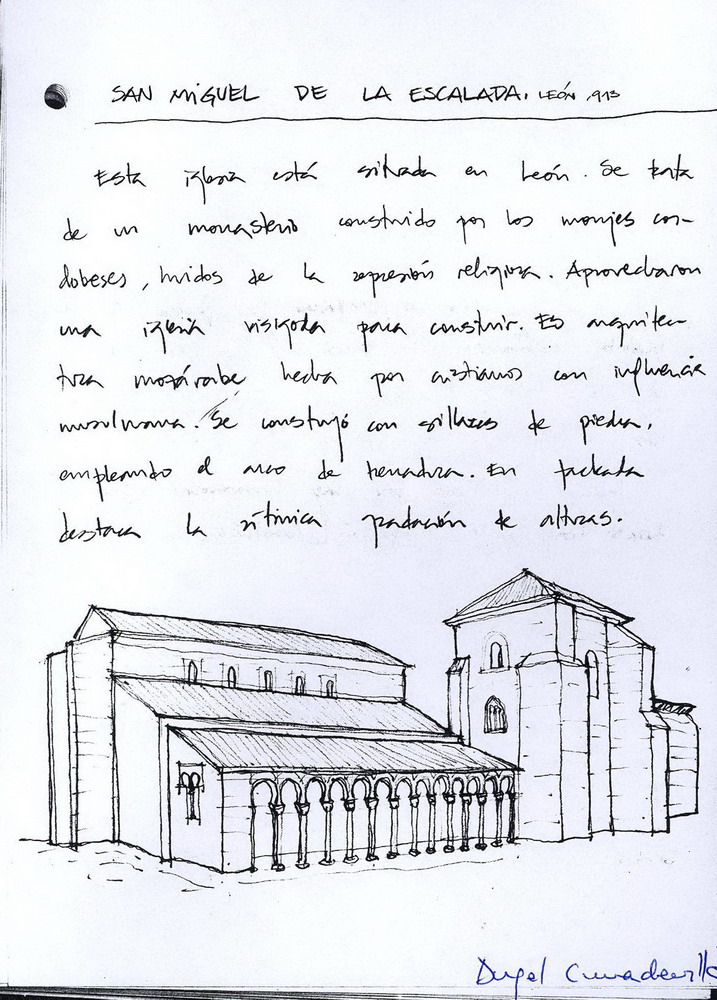 SAN MIGUEL DE LA ESCALADA. LEÓN, 913
Esta iglesia está situada en León. Se trata
de un monasterio construido por los monjes cor-
dobeses, huidos de la represión religiosa. Aprovecharon
una iglesia visigoda para construir. Es arquitec-
tura mozárabe hecha por cristianos con influencia
musulmana. Se construyó con sillares de piedra,
empleando el arco de herradura. En fachada
destaca la rítmica gradación de alturas.
Angel